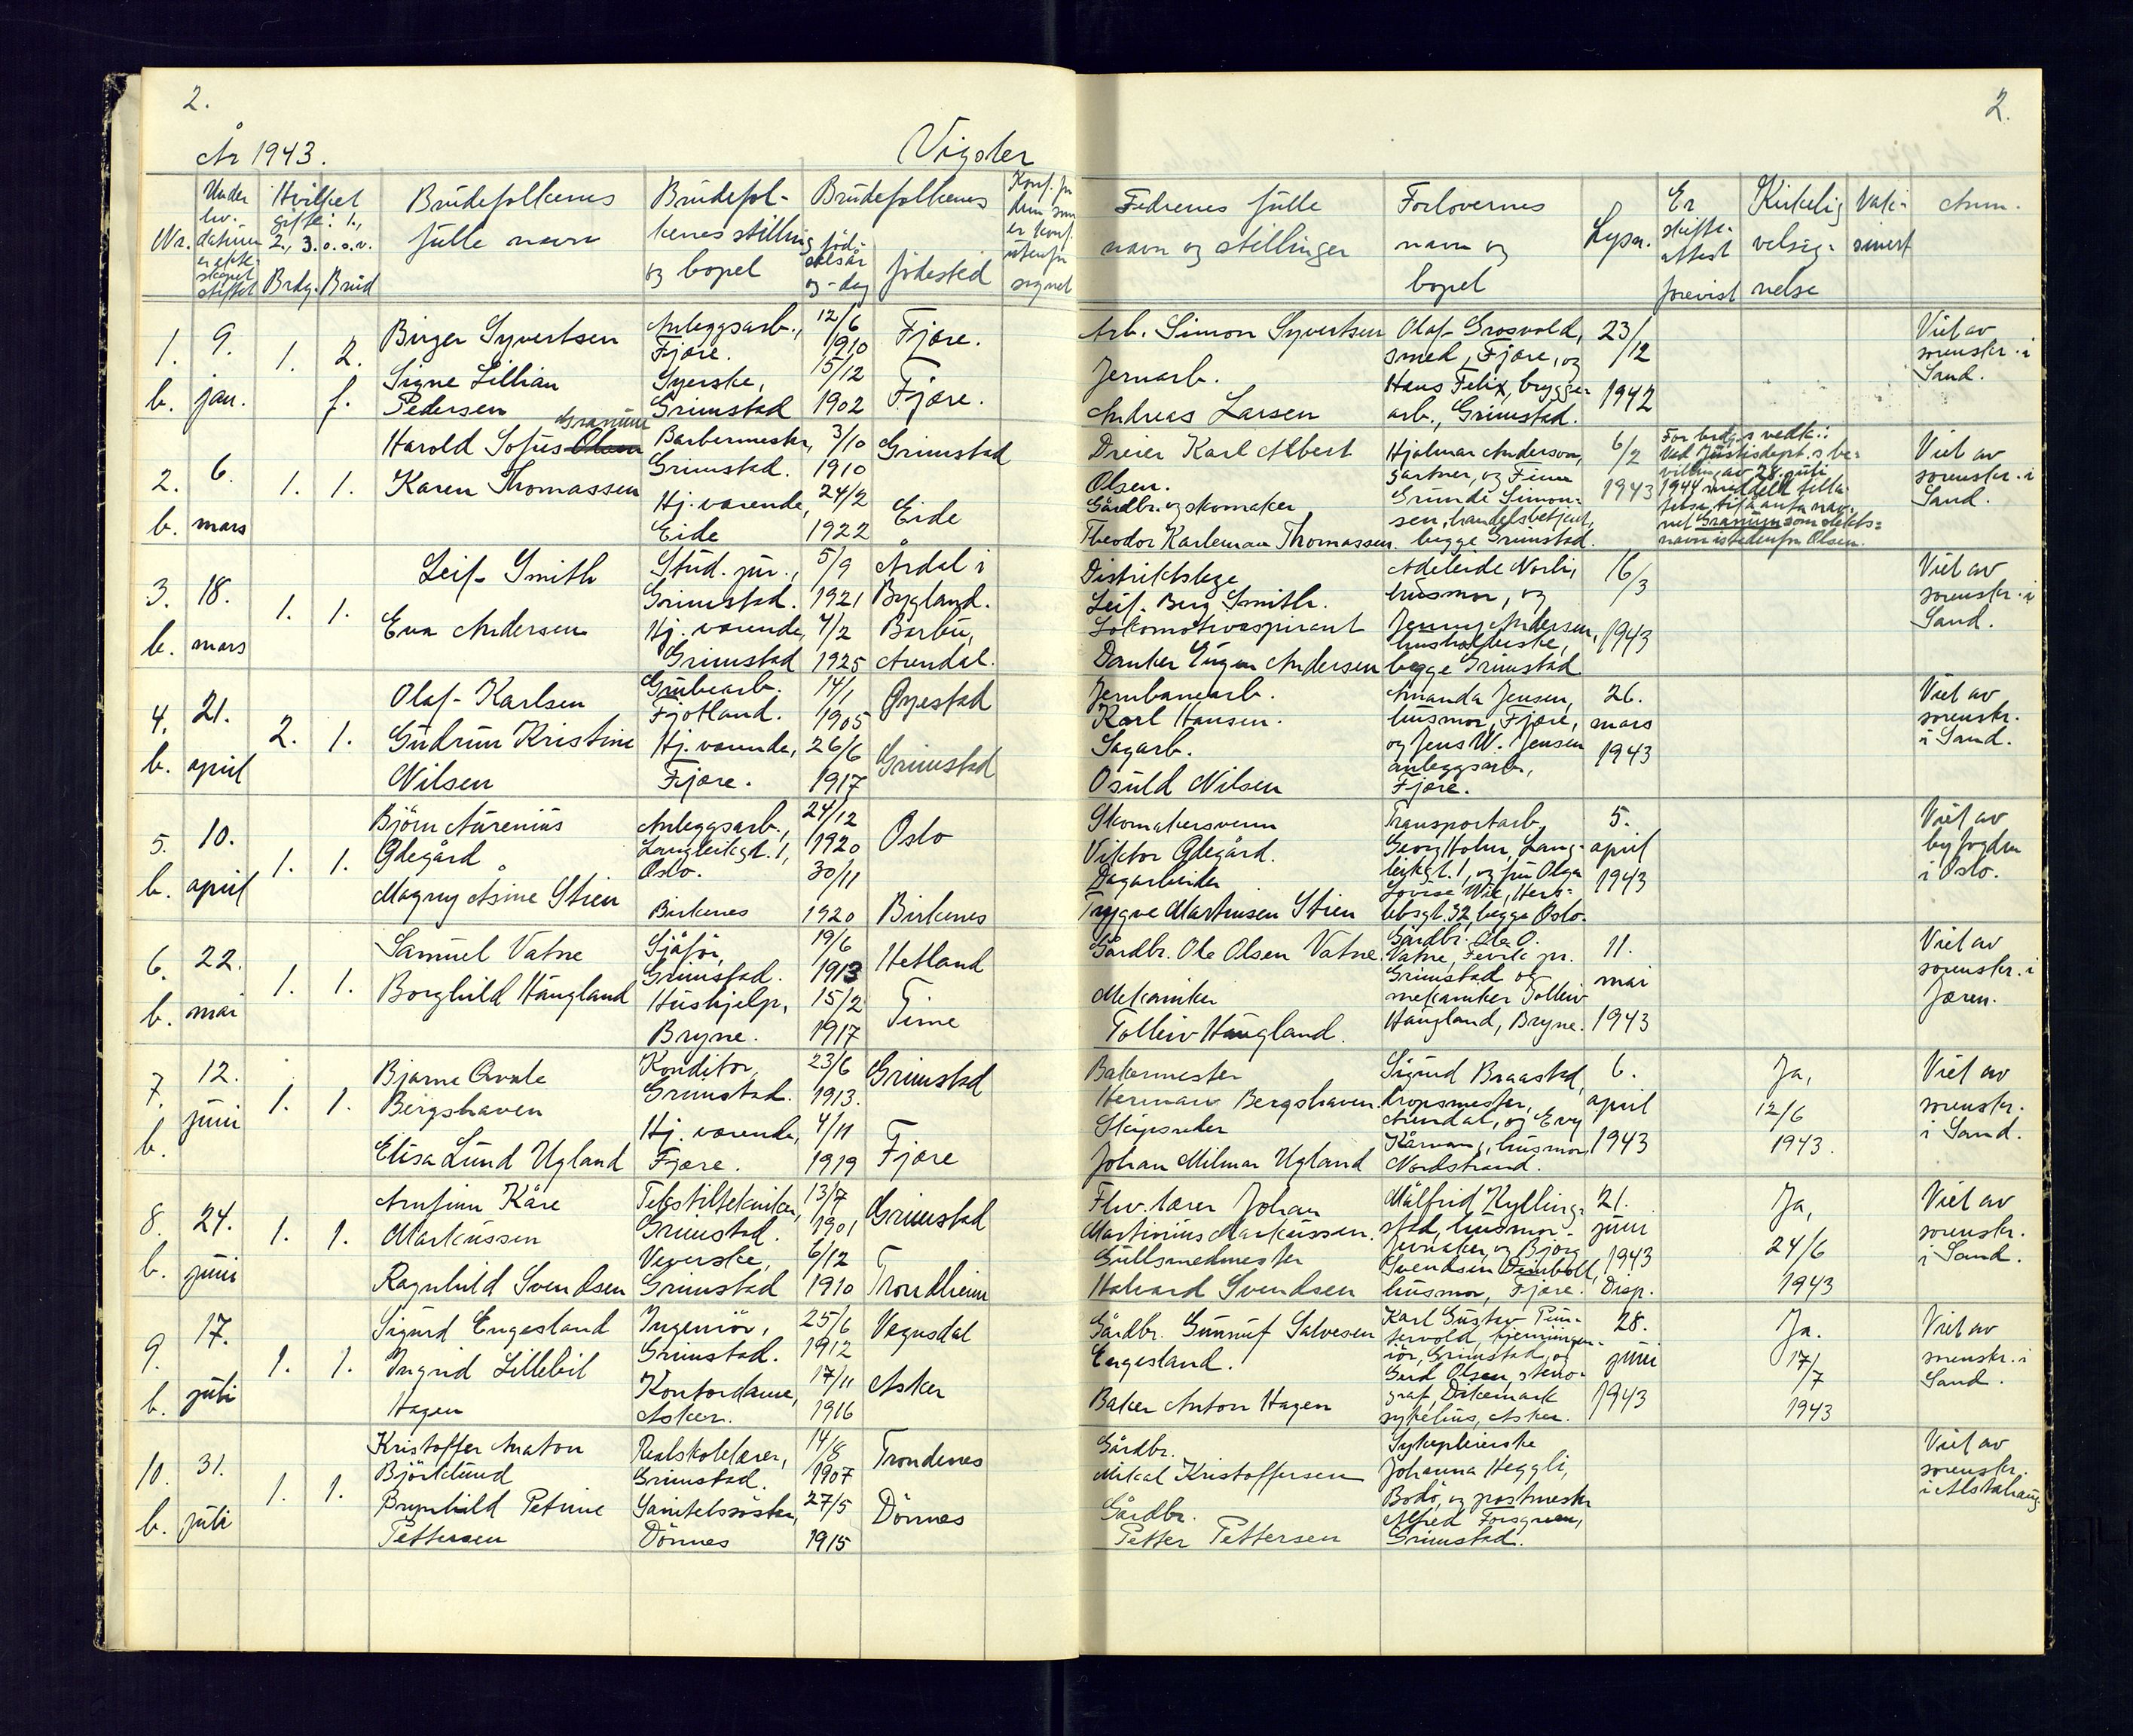 2.
År 1943.
Vigsler
2.
Nr.
Under hv. datum er ekteskapet stiftet
Hvilket gifte: 1., 2., 3. o.s.v.
Brdg. Brud
Brudefolkenes fulle navn
Brudefolkenes stilling og bopel
Brudefolkenes
födselsår og -dag
födested
Konf. for dem som er konf. utenfor sognet
Fedrenes fulle navn og stillinger
Forlovernes navn og bopel
Lysn.
Er skifteattest forevist
Kirkelig velsignelse
Vaksinert
Anm.
1. b.
9. jan.
1.
2. f.
Birger Syvertsen
Signe Lillian
Pedersen
Anleggsarb.,
Fjære.
Syerske,
Grimstad
12/6
1910
15/12
1902
Fjære.
Fjære.
Arb. Simon Syvertsen
Jernarb.
Andreas Larsen
Olaf Grosvold,
smed, Fjære, og
Hans Felix, brygge-
arb., Grimstad.
23/12
1942
Viet av
sorenskr. i
Sand.
2. b.
6. mars
1. 1.
Granum
Harold Sofus Olsen
Karen Thomassen
Barbermester,
Grimstad.
Hj. værende,
Eide
3/10
1910
24/2
1922
Grimstad
Eide
Dreier Karl Albert
Olsen.
Gårdbr. og skomaker
Theodor Karleman Thomassen.
Hjalmar Anderson,
gartner, og Finn
Grunde Simon-
sen, handelsbetjent,
begge Grimstad.
6/2
1943
For brdg.s vedk.:
Ved Justisdept.s be-
villing av 28. juli
1944 meddelt tilla-
telse til å anta nav-
net Granum som slekts-
navn istedenfor Olsen.
Viet av
sorenskr. i
Sand.
3. b.
18. mars
1. 1.
Leif Smith
Eva Andersen
Stud. jur.,
Grimstad.
Hj. værende,
Grimstad
5/9
1921
4/2
1925
Årdal i
Bygland.
Barbu,
Arendal.
Distriktslege
Leif Berg Smith.
Lokomotivaspirant
Danker Eugen Andersen
Adeleide Norli,
husmor, og
Jenny Andersen,
husholderske,
begge Grimstad
16/3
1943
Viet av
sorenskr. i
Sand.
4. b.
21. april
2. 1.
Olaf Karlsen
Gudrun Kristine
Nilsen
Grubearb.
Fjotland.
Hj. værende,
Fjære.
14/1
1905
26/6
1917
Øyestad
Grimstad
Jernbanearb.
Karl Hansen.
Sagarb.
Osuld Nilsen
Amanda Jensen,
husmor, Fjære,
og Jens W. Jensen
anleggsarb.,
Fjære.
26.
mars
1943
Viet av
sorenskr.
i Sand.
5. b.
10. april
1. 1.
Björn Aurenius
Ødegård
Magny Åsine Stien
Anleggsarb.,
Langleikgt. 1,
Oslo.
Birkenes
24/12
1920
30/11
1920
Oslo
Birkenes
Skomakersvenn
Viktor Ødegård.
Dagarbeider
Trygve Martinsen Stien
Transportarb.
Georg Holm, Lang-
leikgt. 1, og fru Olga
Lovise Wie, Hers-
lebsgt. 32, begge Oslo.
5.
april
1943
Viet av
byfogden
i Oslo.
6. b.
22. mai
1. 1.
Samuel Vatne
Borghild Haugland
Sjåför,
Grimstad.
Hushjelp,
Bryne.
19/6
1913
15/2
1917
Hetland
Time
Gårdbr. Ole Olsen Vatne.
Mekaniker
Tolleiv Haugland.
Gårdbr. Ole O.
Vatne, Fevik pr.
Grimstad og
mekaniker Tolleiv
Haugland, Bryne.
11.
mai
1943
Viet av
sorenskr. i
Jæren.
7. b.
12. juni
1. 1.
Bjarne Qvale
Bergshaven
Elisa Lund Ugland
Konditor,
Grimstad.
Hj. værende,
Fjære.
23/6
1913.
4/11
1919
Grimstad
Fjære
Bakermester
Herman Bergshaven.
Skipsreder
Johan Milmar Ugland
Sigurd Braastad,
dropsmester,
Arendal, og Evy
husmor,
Nordstrand.
6.
april
1943
Ja,
12/6
1943.
Viet av
sorenskr.
i Sand.
8. b.
24. juni
1. 1.
Arnfinn Kåre
Markussen
Ragnhild Svendsen
Tekstiltekniker,
Grimstad.
Veverske,
Grimstad
13/7
1901
6/12
1910
Grimstad
Trondheim
Fhv. lærer Johan
Martinius Markussen.
Gullsmedmester
Halvard Svendsen
Målfrid Kylling-
stad, husmor,
Jevnaker, og Bjorg
Svendsen Dimboll,
husmor, Fjære.
21.
juni
1943
Disp.
Ja,
24/6
1943
Viet av
sorenskr.
i Sand.
9. b.
17. juli
1. 1.
Sigurd Engesland
Ingrid Lillebil
Hagen
Ingeniör,
Grimstad.
Kontordame,
Asker.
25/6
1912
17/11
1916
Vegusdal
Asker
Gårdbr. Gunnuf Salvesen
Engesland.
Baker Anton Hagen
Karl Gustav Pun-
tervold, bjerningen-
iör, Grimstad, og
Gerd Olsen, steno-
graf, Dikemark
sykehus, Asker.
28.
juni
1943
Ja.
17/7
1943
Viet av
sorenskr. i
Sand.
10. b.
31. juli
1. 1.
Kristoffer Anaton
Björklund
Brynhild Petrine
Pettersen
Realskolelærer,
Grimstad.
Sanitetssöster,
Dönnes
14/8
1907
27/5
1915
Trondenes
Dönnes
Gårdbr.
Mikal Kristoffersen
Gårdbr.
Petter Pettersen
Sykepleierske
Johanna Heggli,
Bodö, og postmester
Alfred Forsgren,
Grimstad.
Viet av
sorenskr.
i Alstahaug